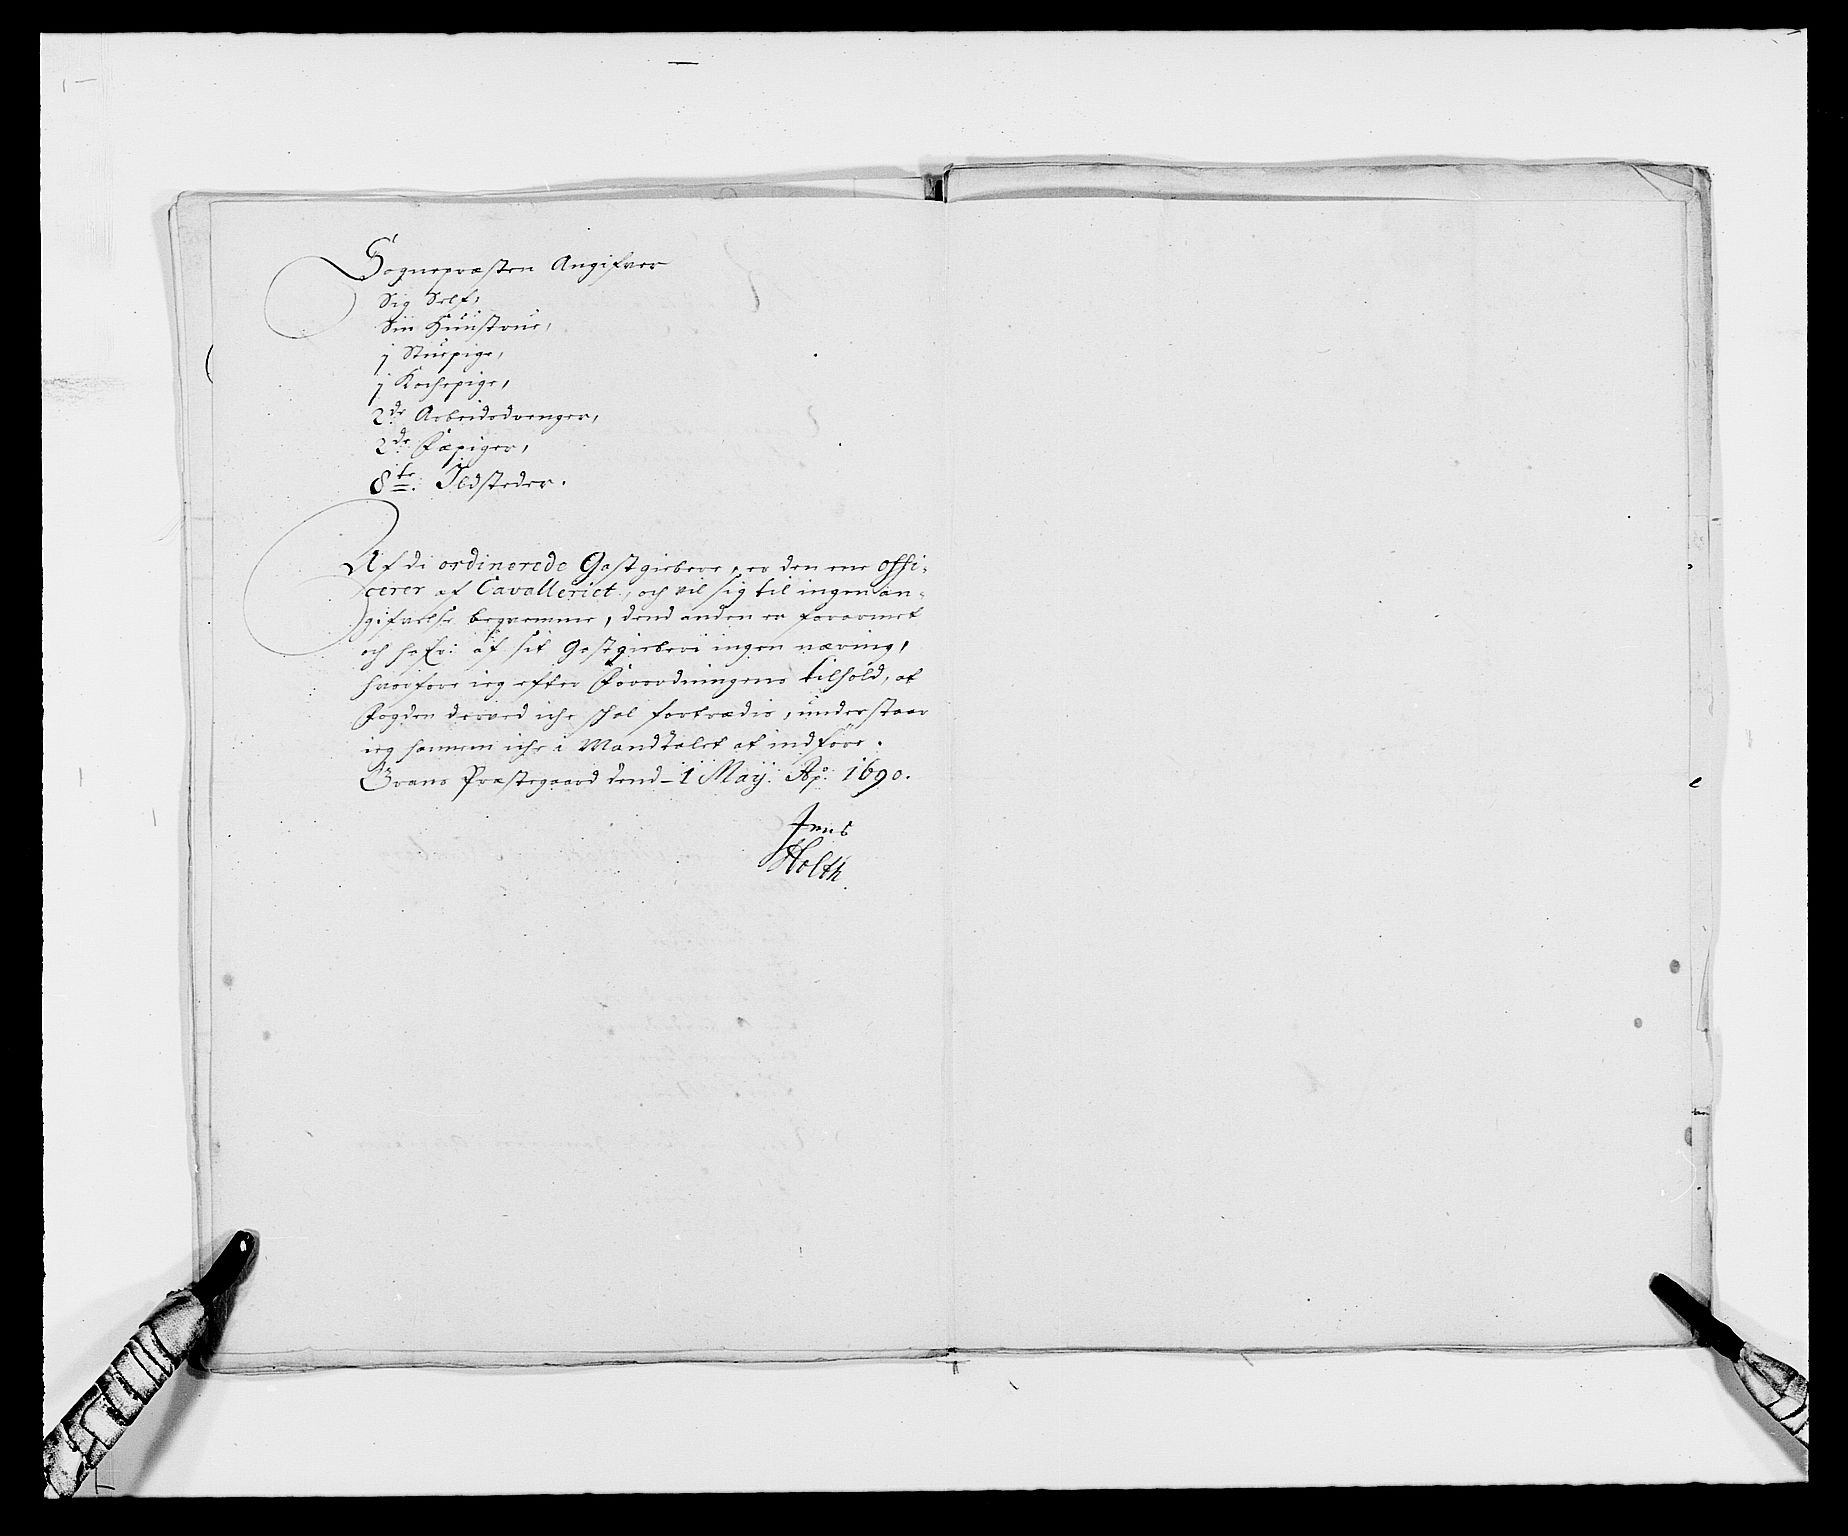 Sognepræsten Angifver
Sig Self,
Sin Hüüstrue,
1 Stuepige,
1 Kochepige,
2de Arbeidsdrenger,
2de Fæpiger,
8te: Ildsteder.
Af de ordinerede Gastgiebere, er den ene offi-
cerer af Cavalleriet, och vil sig til ingen an-
gifvelse beqvemme, dend anden er forarmet
och hafr: af sit Gestgieberi ingen næring,
hvorfore ieg efter Forordningens tilhold, at
Fogden derved iche skal fortrædis, understaar
ieg hannem iche i Mandtalet at indföre.
Grans Præstegaard dend 1 Maÿ. Aō: 1690.
Jens
Holth.